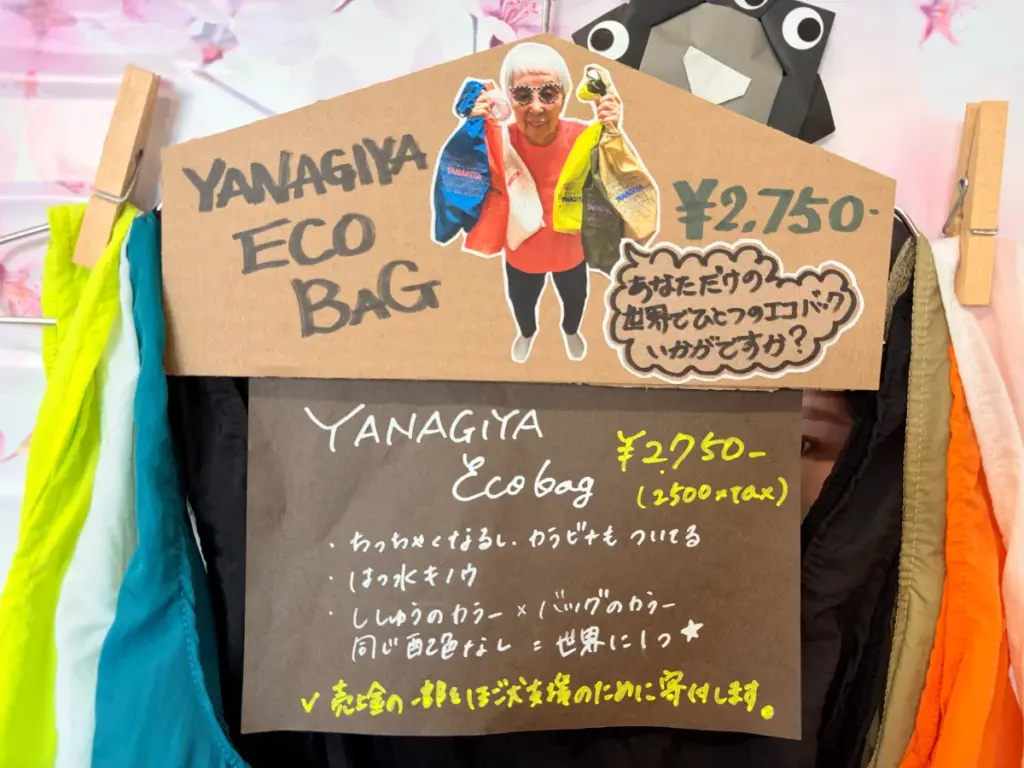 YANAGIYA
ECO
BAG
¥2,750-
あなただけの
世界でひとつのエコバッグ
いかがですか?
YANAGIYA
Eco bag
¥2,750-
(2500×tax)
・ちっちゃくなるし、カラビナもついてる
・はっ水キノウ
・ししゅうのカラー × バッグのカラー
同じ配色なし = 世界に1つ★
✓ 売上金の一部をほご犬支援のために寄付します。
YANAGIYA
YANAGIYA
YANAGIYA